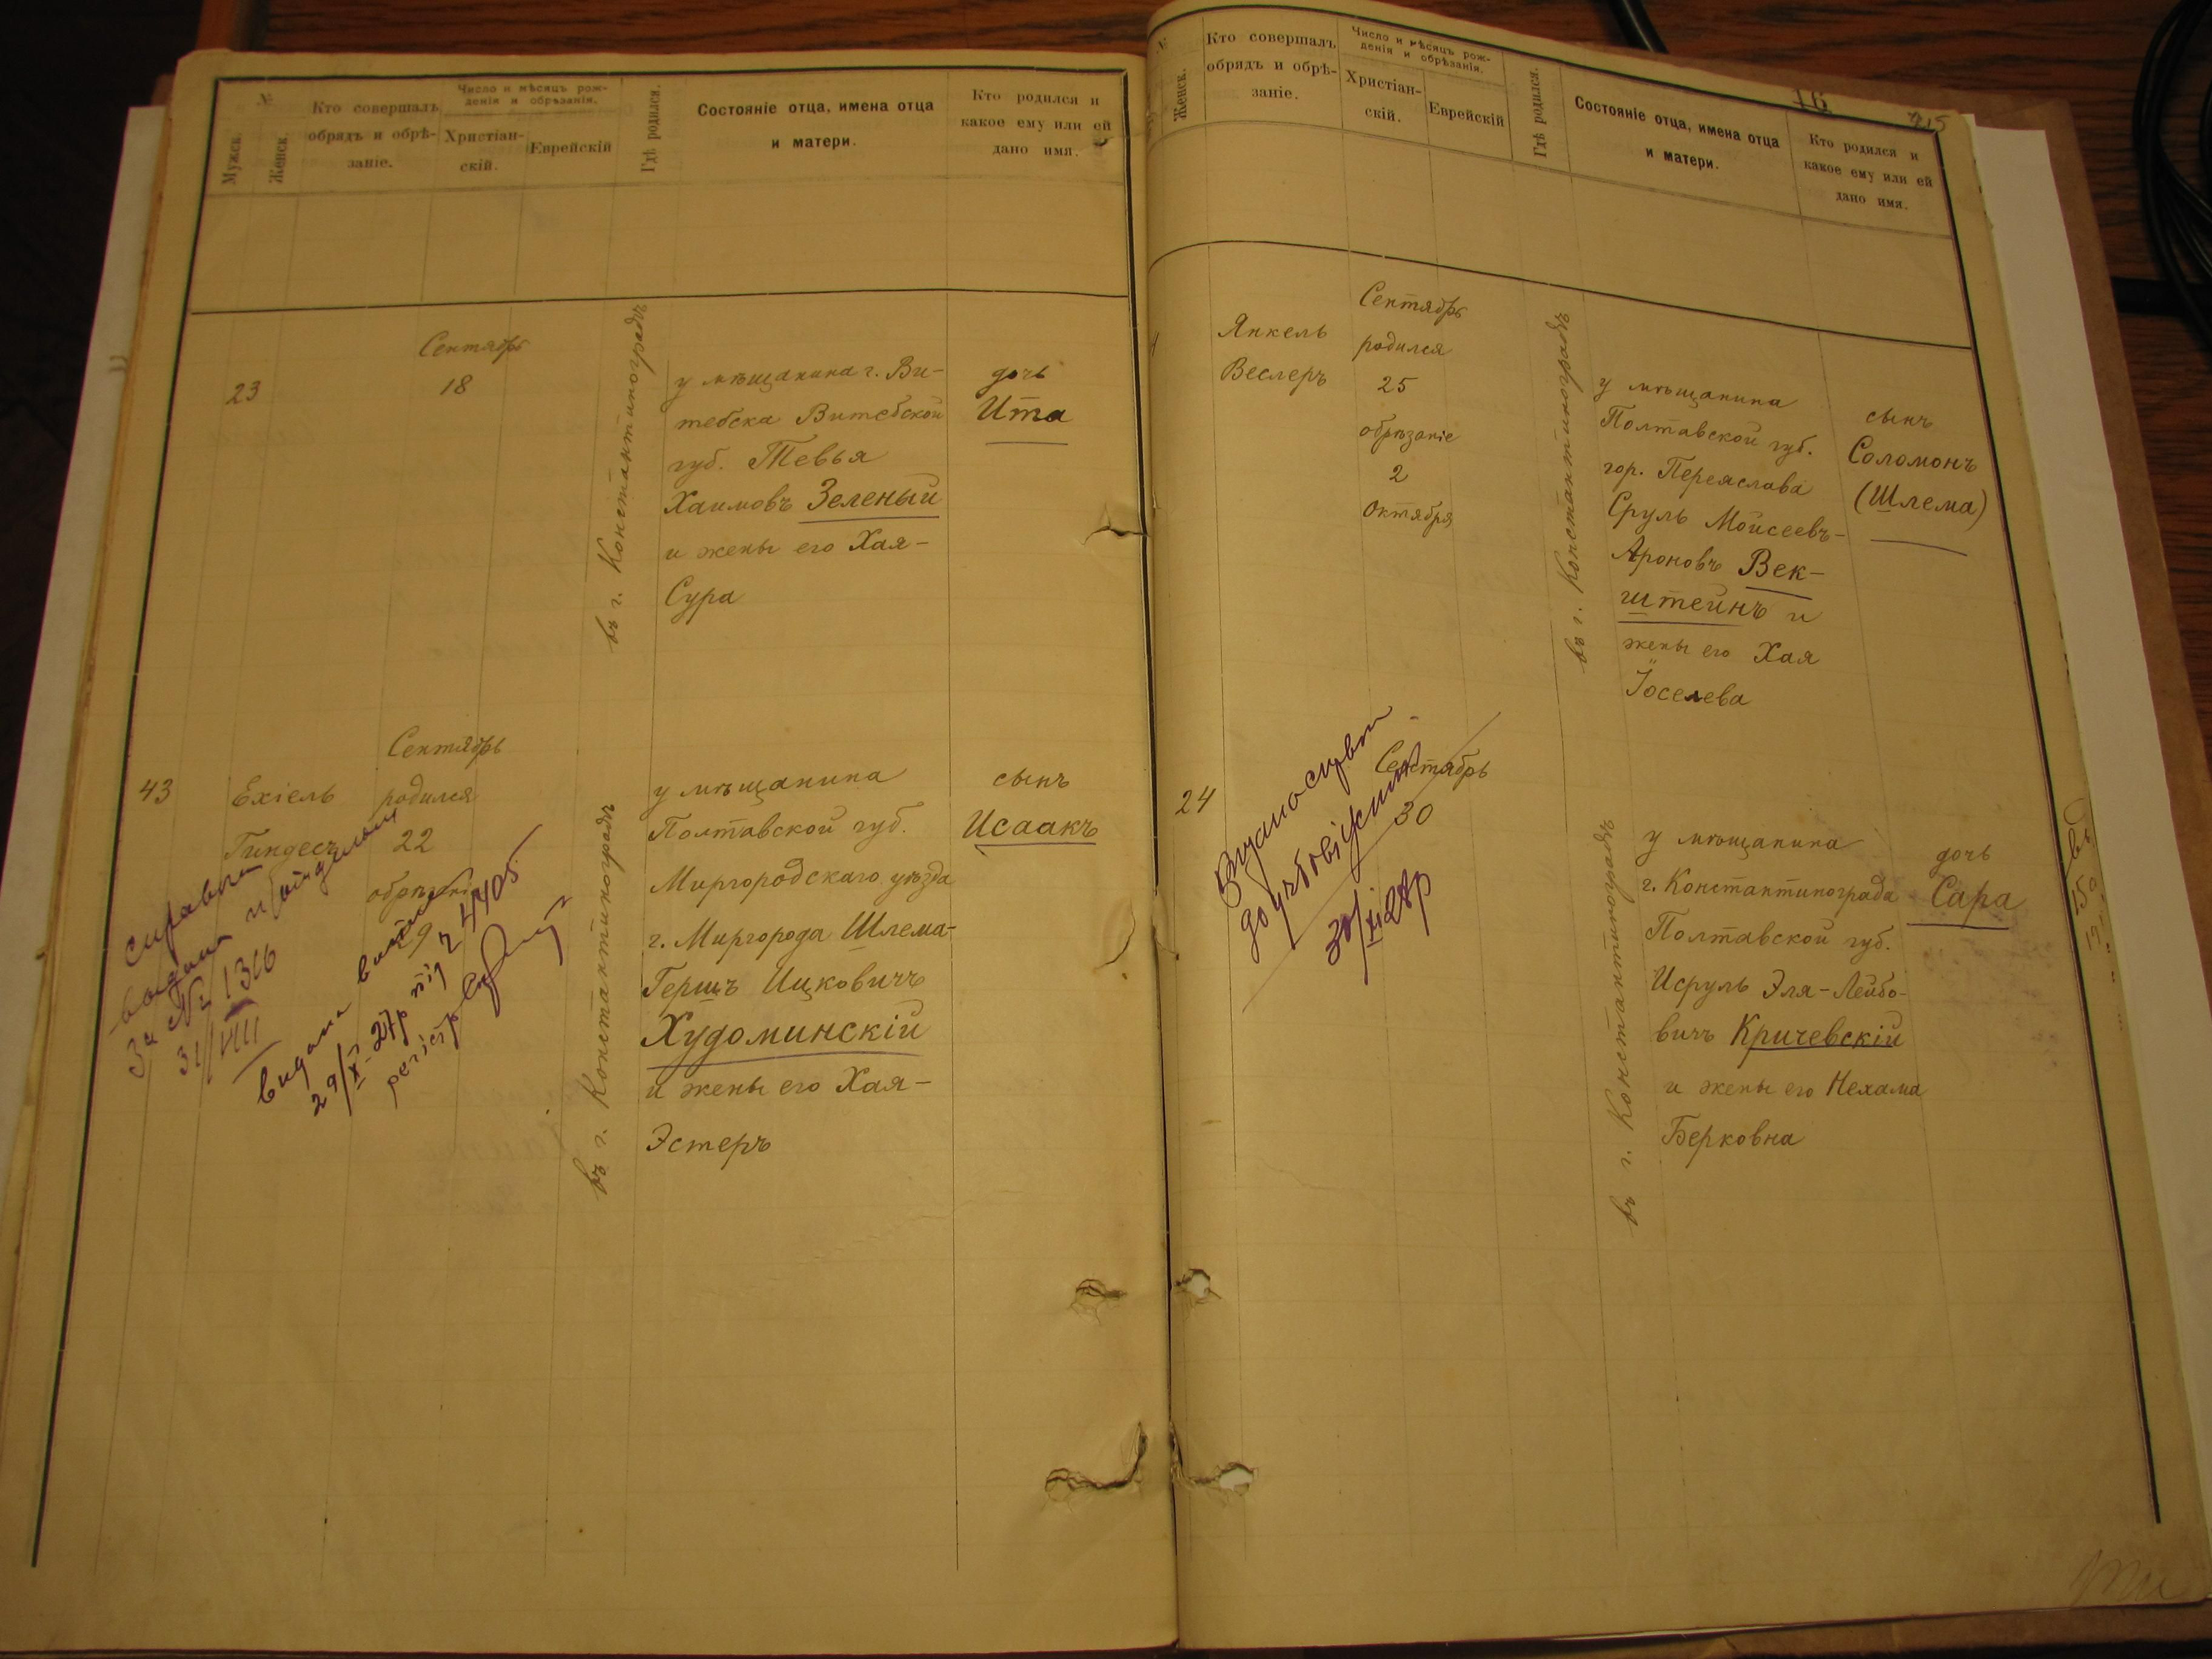 №
Мужск.
Женск.
Кто совершалъ
обрядъ и обрѣ-
заніе.
Число и мѣсяцъ рож-
денія и обрѣзанія.
Христіан-
скій.
Еврейскій
Гдѣ родился.
Состояніе отца, имена отца
и матери.
Кто родился и
какое ему или ей
дано имя.
23
Сентябрь
18
въ г. Константиноградѣ
у мѣщанина г. Ви-
тебска Витебской
губ. Тевья
Хаимовъ Зеленый
и жены его Хая-
Сура
дочь
Ита
43
Ехіель
Гиндесъ
Сентябрь
родился
22
обрѣзаніе
29
въ г. Константиноградѣ
у мѣщанина
Полтавской губ.
Миргородскаго уѣзда
г. Миргорода Шлема-
Гершъ Ицковичъ
Худоминскій
и жены его Хая-
Эстеръ
сынъ
Исаакъ
справка
выдана
За № 1316
31/VIII
видана
29/X-27р під 24405
№
Женск.
Кто совершалъ
обрядъ и обрѣ-
заніе.
Число и мѣсяцъ рож-
денія и обрѣзанія.
Христіан-
скій.
Еврейскій
Гдѣ родился.
Состояніе отца, имена отца
и матери.
Кто родился и
какое ему или ей
дано имя.
16
215
Янкель
Веслеръ
Сентябрь
родился
25
обрѣзаніе
2
Октября
въ г. Константиноградѣ
у мѣщанина
Полтавской губ.
гор. Переяслава
Сруль Мойсеевъ-
Ароновъ Век-
штейнъ и
жены его Хая
Іоселева
сынъ
Соломонъ
(Шлема)
24
Сентябрь
30
въ г. Константиноградѣ
у мѣщанина
г. Константинограда
Полтавской губ.
Исруль Эля-Лейбо-
вичъ Кричевскій
и жены его Нехама
Берковна
дочь
Сара
30/XI 28р